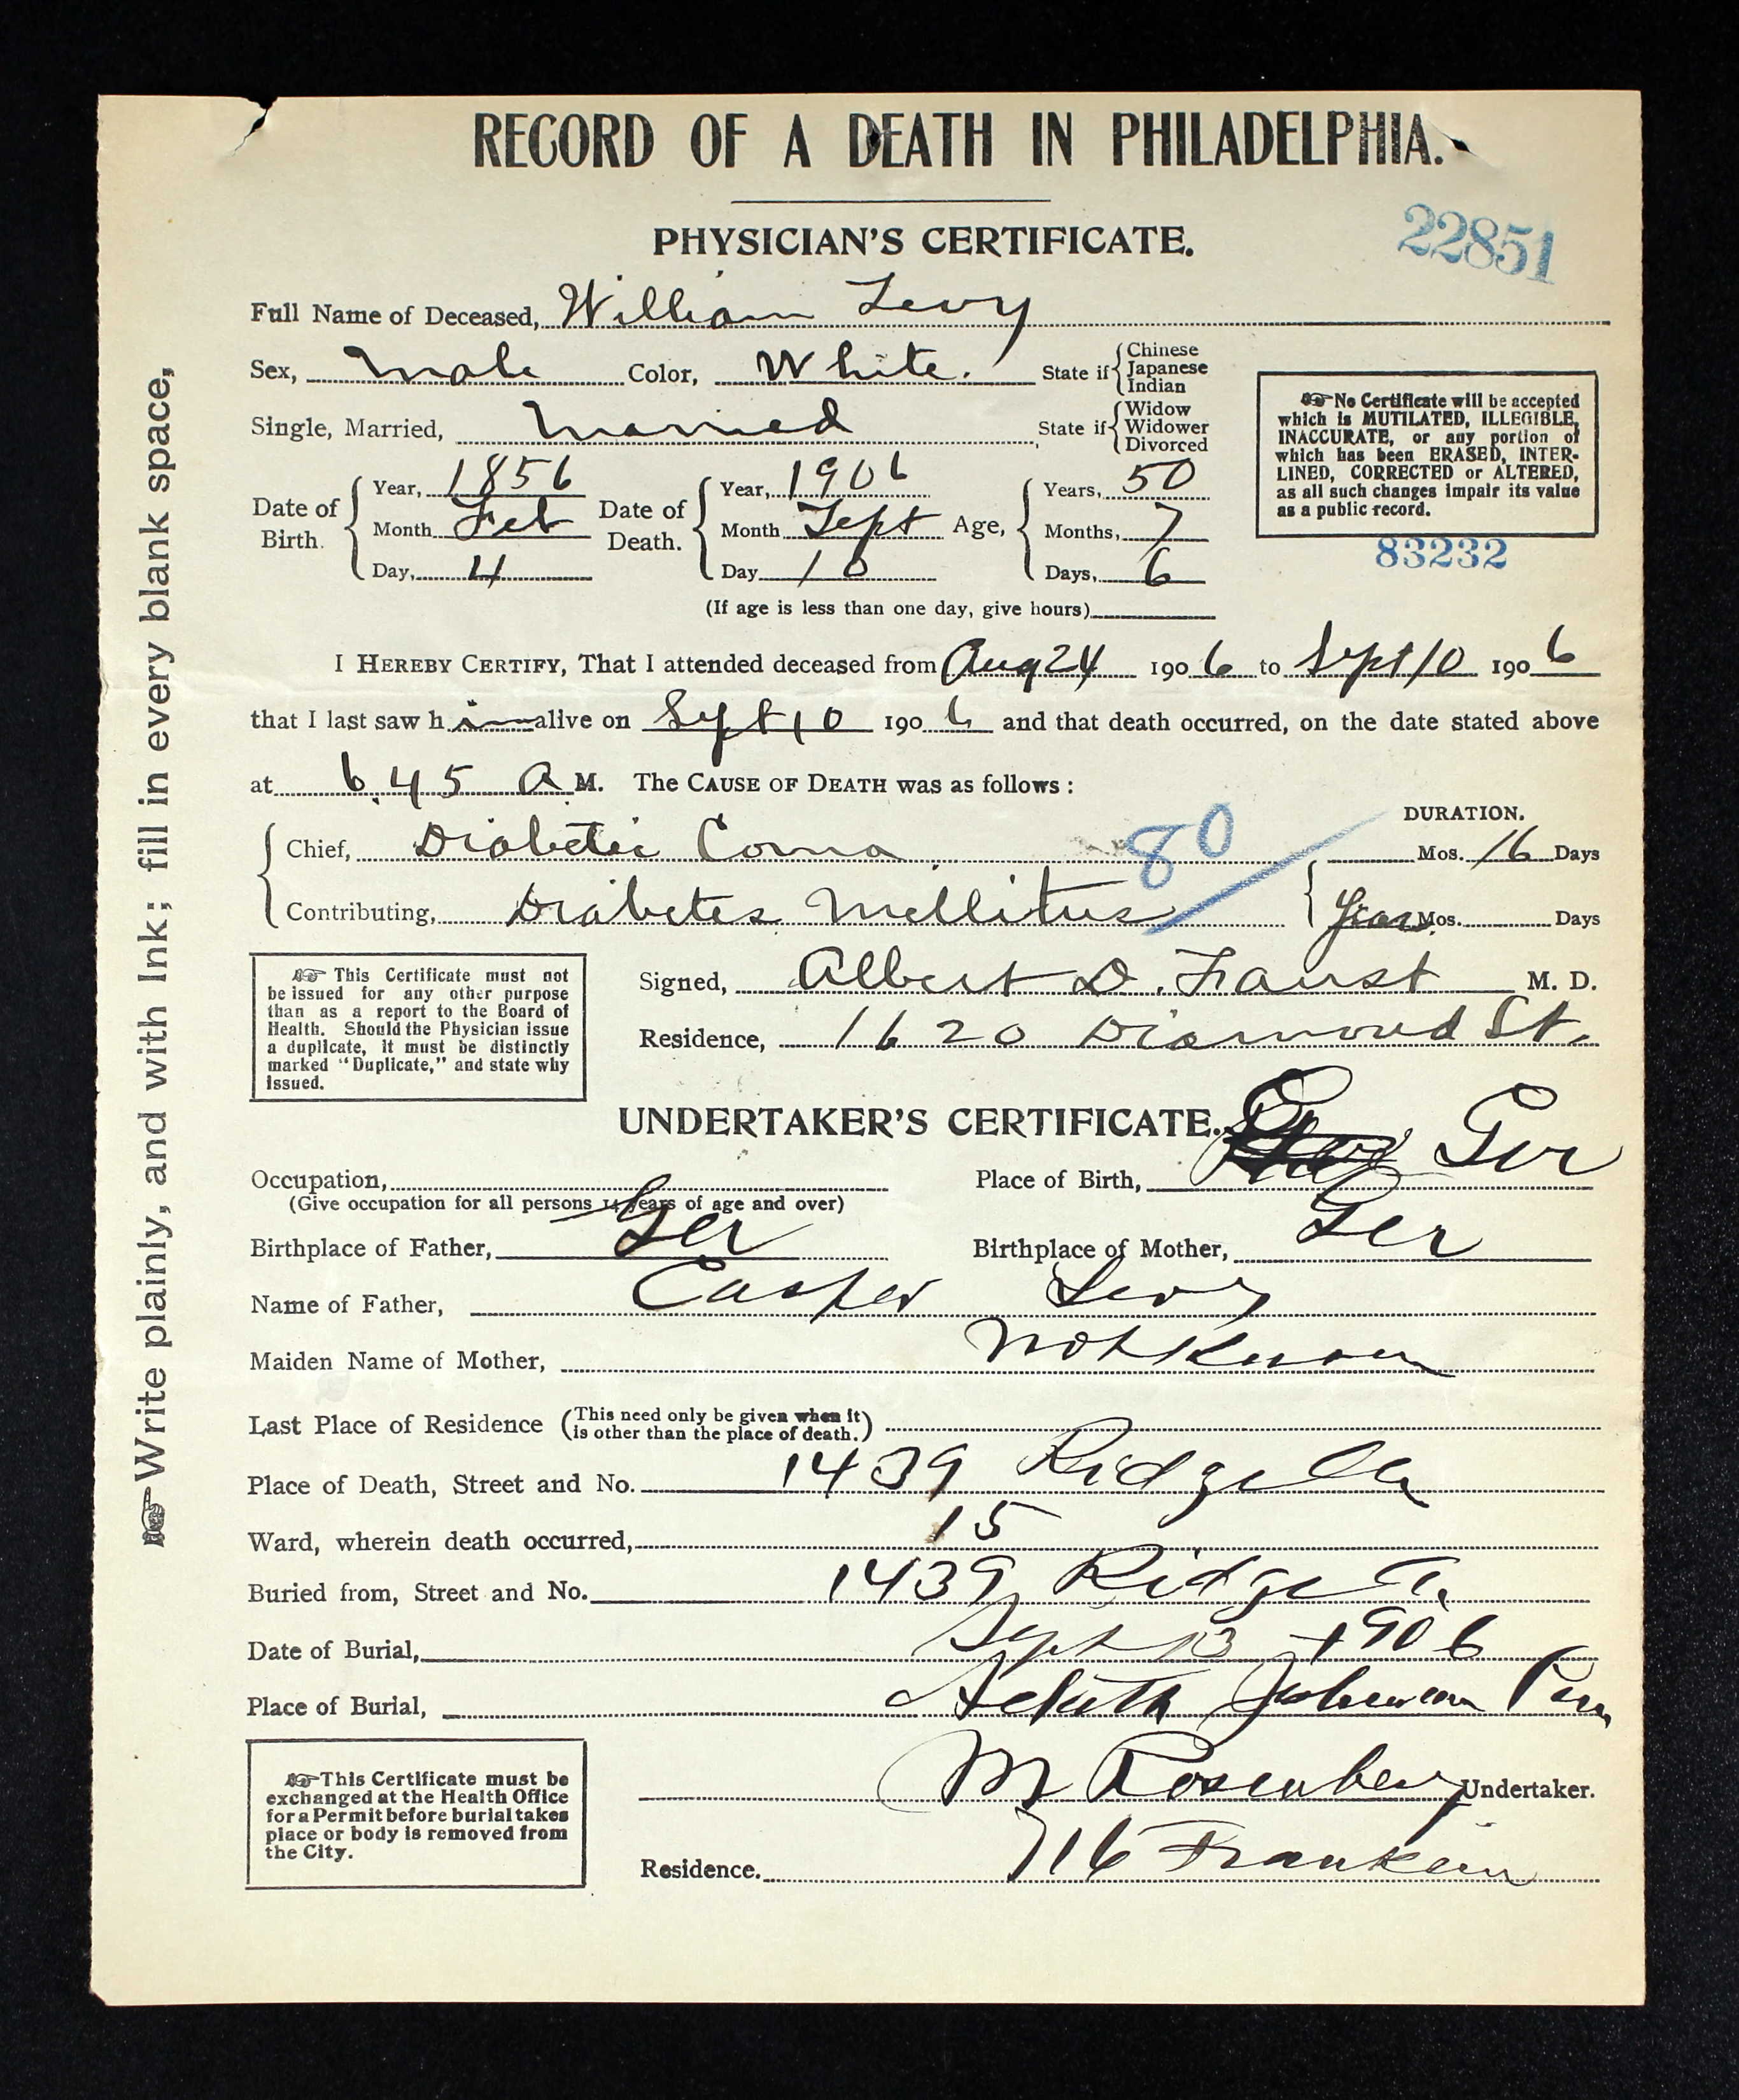 RECORD OF A DEATH IN PHILADELPHIA.
PHYSICIAN'S CERTIFICATE.
22851
Full Name of Deceased, William Levy
Sex, Male Color, White. State if { Chinese Japanese Indian
Single, Married, Married State if { Widow Widower Divorced
☞ No Certificate will be accepted
which is MUTILATED, ILLEGIBLE,
INACCURATE, or any portion of
which has been ERASED, INTER-
LINED, CORRECTED or ALTERED,
as all such changes impair its value
as a public record.
83232
Date of Birth. { Year, 1856 Month Feb Day, 4
Date of Death. { Year, 1906 Month Sept Day 10
Age, { Years, 50 Months, 7 Days, 6
(If age is less than one day, give hours)
I HEREBY CERTIFY, That I attended deceased from Aug 24 1906 to Sept 10 1906
that I last saw him alive on Sept 10 1906 and that death occurred, on the date stated above
at 6.45 A M. The CAUSE OF DEATH was as follows:
DURATION.
Chief, Diabetic Coma 80 Mos. 16 Days
Contributing, Diabetes Mellitus Years Mos. Days
☞ This Certificate must not
be issued for any other purpose
than as a report to the Board of
Health. Should the Physician issue
a duplicate, it must be distinctly
marked "Duplicate," and state why
issued.
Signed, Albert D. Faust M. D.
Residence, 1620 Diamond St.
UNDERTAKER'S CERTIFICATE.
Occupation, Place of Birth, Ger
(Give occupation for all persons 14 years of age and over)
Birthplace of Father, Ger Birthplace of Mother, Ger
Name of Father, Casper Levy
Maiden Name of Mother, Not Known
Last Place of Residence (This need only be given when it is other than the place of death.)
Place of Death, Street and No. 1439 Ridge
Ward, wherein death occurred, 15
Buried from, Street and No. 1439 Ridge
Date of Burial, Sept 13 1906
Place of Burial,
☞ This Certificate must be
exchanged at the Health Office
for a Permit before burial takes
place or body is removed from
the City.
M Rosenberg Undertaker.
Residence. 716 Franklin
☞ Write plainly, and with Ink; fill in every blank space,